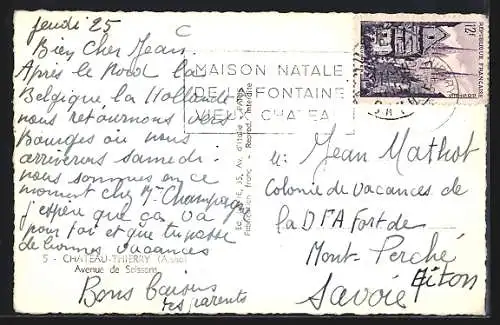 jeudi 25
Bien Cher Jean.
Après le Nord la
Belgique la Hollande
nous retournons vers
Bourges où nous
arriverons samedi.
nous sommes en ce
moment chez Mr Champagne
j'espère que ça va
pour toi et que tu passe
de bonnes vacances
5 - CHATEAU-THIERRY (Aisne)
Avenue de Soissons
Bons baisers
tes parents
MAISON NATALE
DE LA FONTAINE
VIEUX CHATEAU
12f
REPUBLIQUE FRANÇAISE
35, Av. d'Italie
Fabrication franç. - Reprod. interdite
Jean Mathot
Colonie de Vacances de
la D Fort de
Mont-Perché
Aiton
Savoie